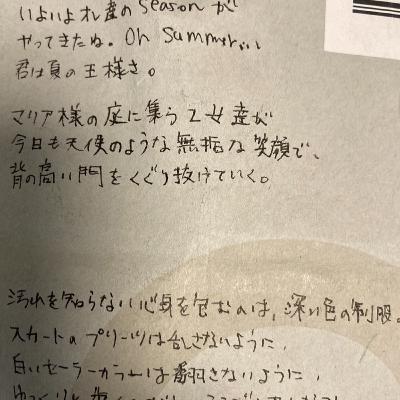 いよいよオレ達のseasonが
やってきたね。Oh summer...
君は夏の王様さ。
マリア様の庭に集う乙女達が
今日も天使のような無垢な笑顔で、
背の高い門をくぐり抜けていく。
汚れを知らない心身を包むのは、深い色の制服。
スカートのプリーツは乱さないように、
白いセーラーカラーは翻さないように、
ゆっくりと歩く